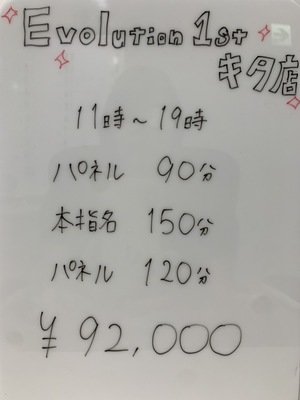 Evolution 1st
キタ店
11時~19時
パネル 90分
本指名 150分
パネル 120分
¥92,000